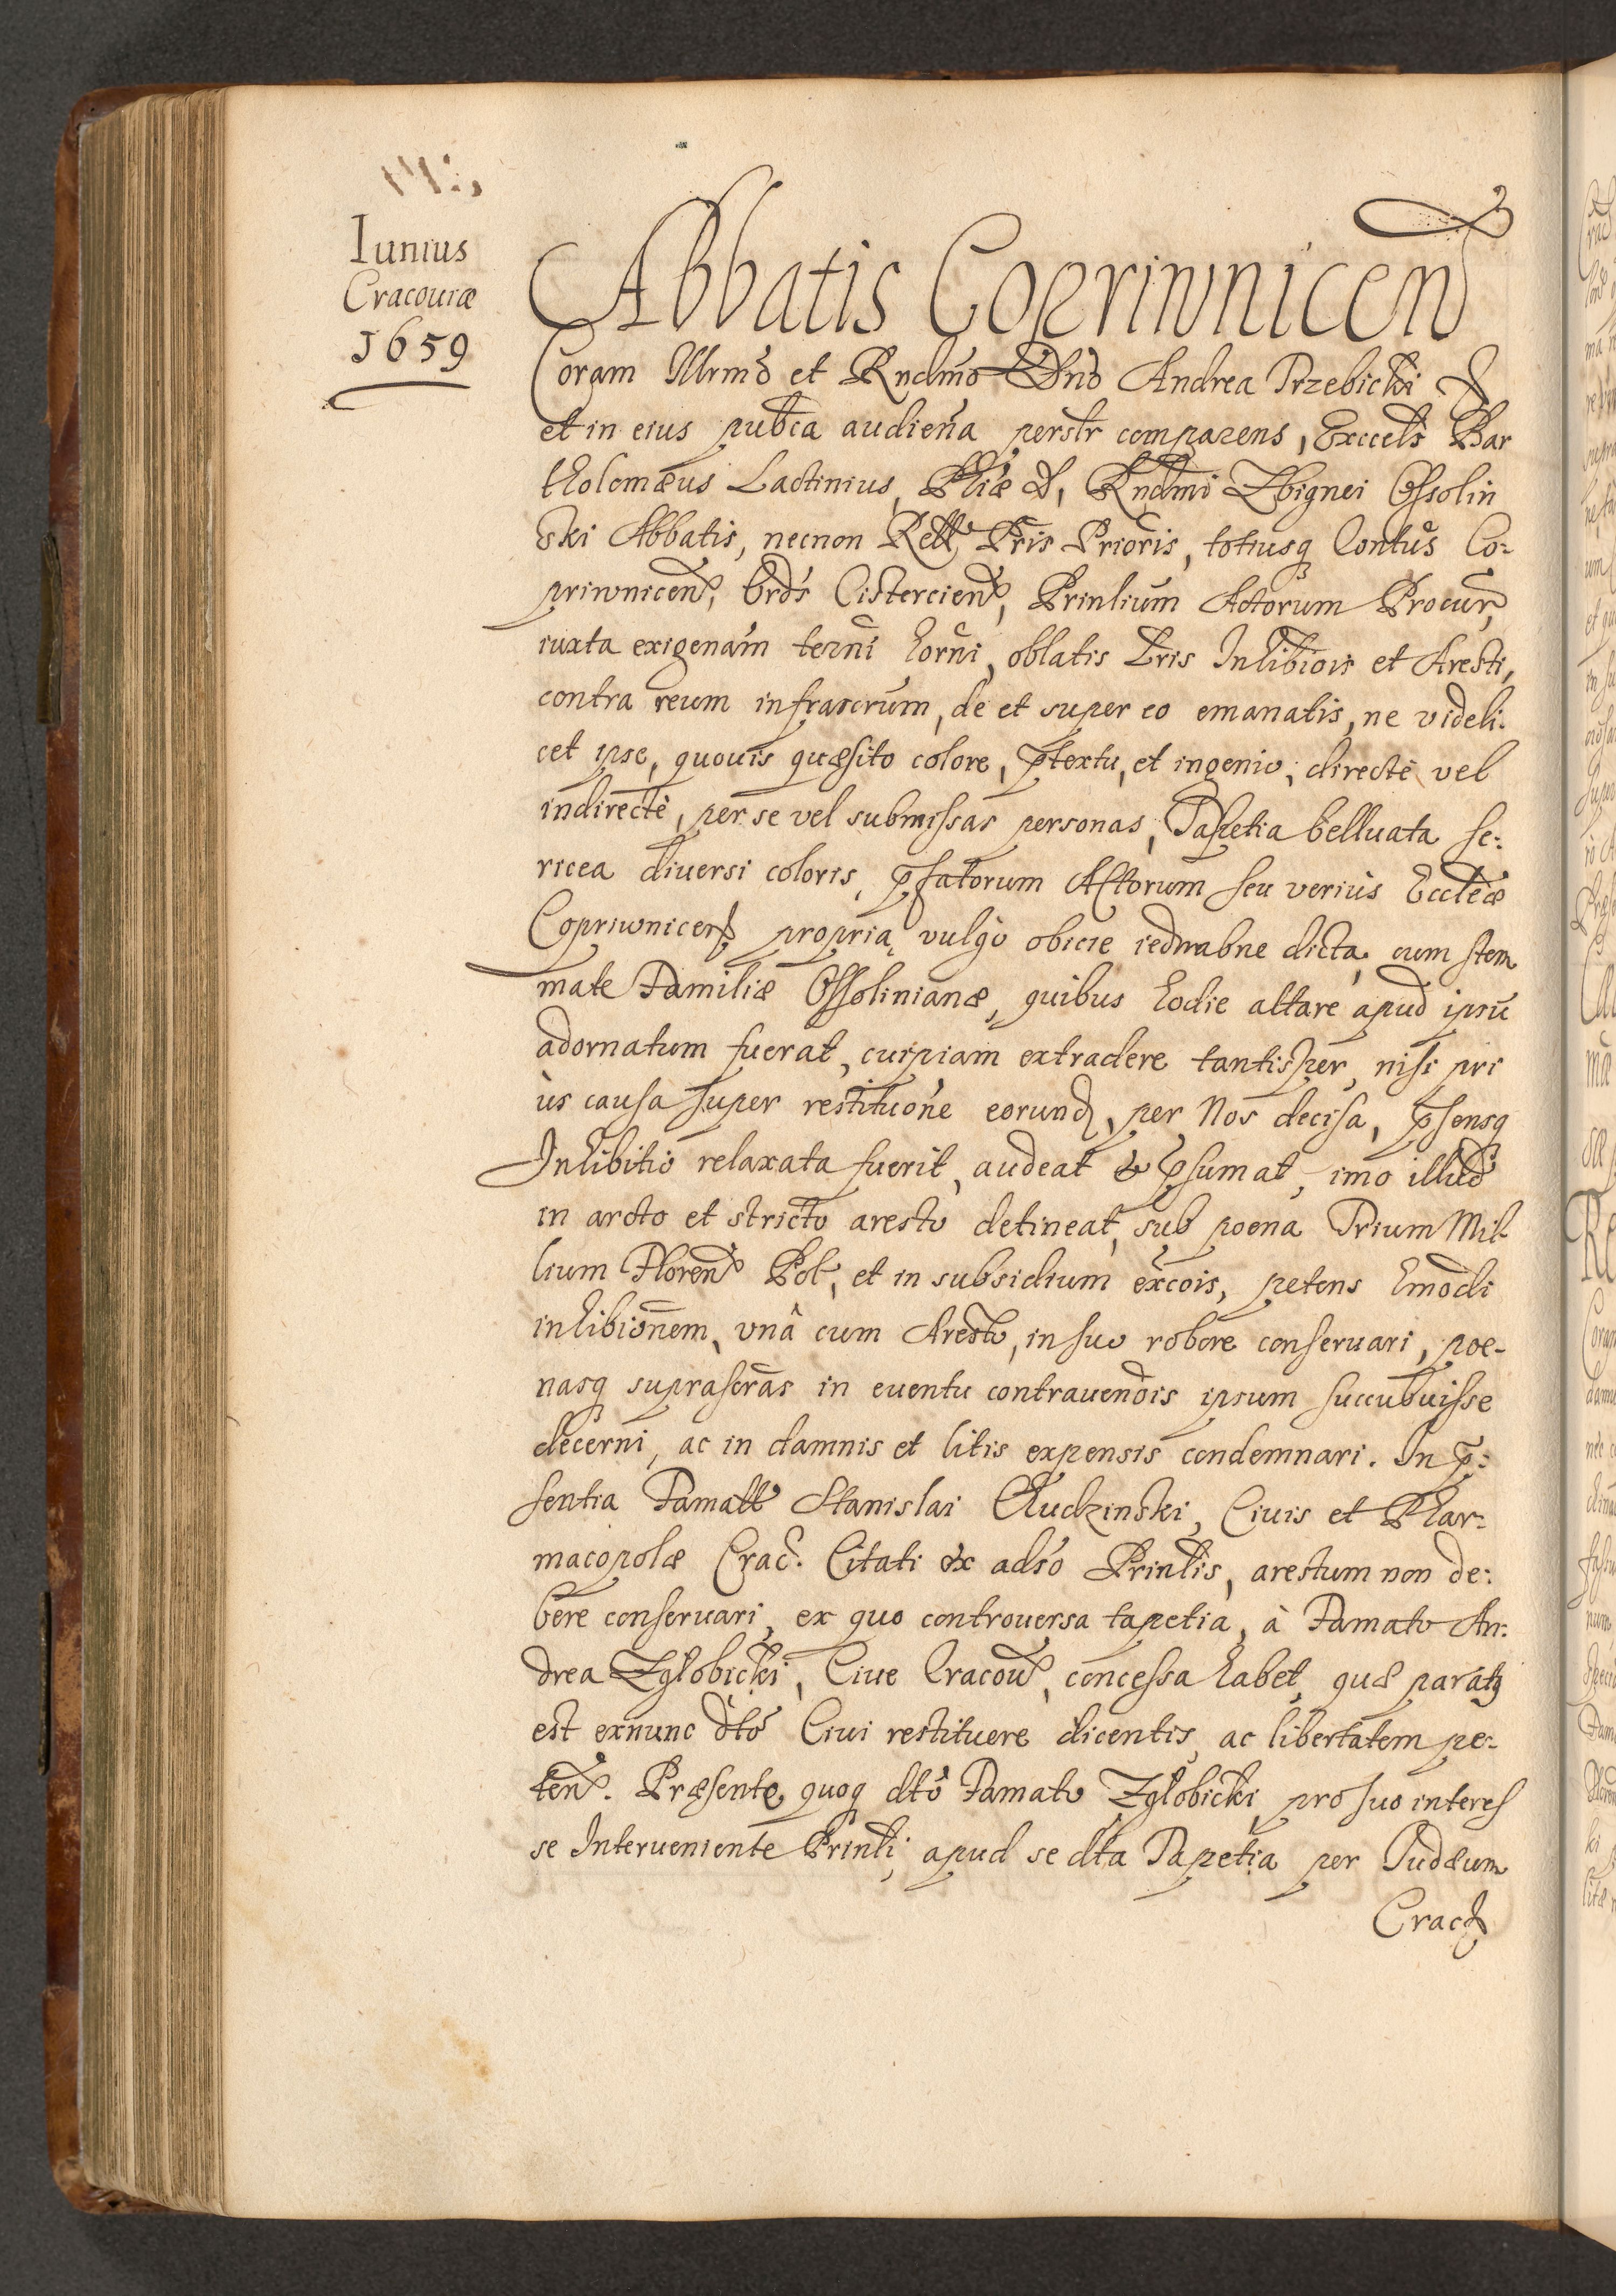 Iunius
Cracouiæ
1659
Abbatis Copriwnicen
Coram Illrmo et Rndmo Dno Andrea Trzebicki
et in eius pubca audiena perslr comparens, Exccels Bar
tholomæus Lactinius, Phiæ D, Rndmi Zbignei Ossolin
ski Abbatis, necnon Rell Pris Prioris, totiusq Contus Co:
priwnicen, Ords Cistercien, Prinlium Actorum Procur,
iuxta exigenam terni horni, oblatis Lris Inhibiois et Aresti,
contra reum infrascrum, de et super eo emanatis, ne videli:
cet ipse, quouis quæsito colore, ptextu, et ingenio, directè vel
indirectè, per se vel submissas personas, Tapetia belluata se:
ricea diuersi coloris, pfatorum Actorum seu veriùs Eccleæ
Copriwnicen propria, vulgò obicie iedwabne dicta, cum stem
mate Familiæ Ossolinianæ, quibus hodie altare apud ipsū
adornatum fuerat, cuipiam extradere tantisper, nisi pri
ùs causa super restituōne eorund, per Nos decisa, psensq
Inhibitio relaxata fuerit, audeat & psumat, imo illud
in arcto et stricto aresto detineat, sub poena Trium Mil
lium Floren Pol, et in subsidium excois, petens hmodi
inhibiōnem, vnâ cum Aresto, in suo robore conseruari, poe-
nasq suprascras in euentu contrauenōis ipsum succubuisse
decerni, ac in damnis et litis expensis condemnari. In p:
sentia Famatt Stanislai Chudzinski, Ciuis et Phar:
macopolæ Crac. Citati ex adso Prinlis, arestum non de:
bere conseruari, ex quo controuersa tapetia, à Famato An:
drea Zgłobicki, Ciue Cracou, concessa habet, quæ paratq
est exnunc dto Ciui restituere dicentis, ac libertatem pe:
ten. Præsente quoq dto Famato Zgłobicki pro suo interes
se Interueniente Prinli, apud se dta Tapetia per Iudæum
Crac